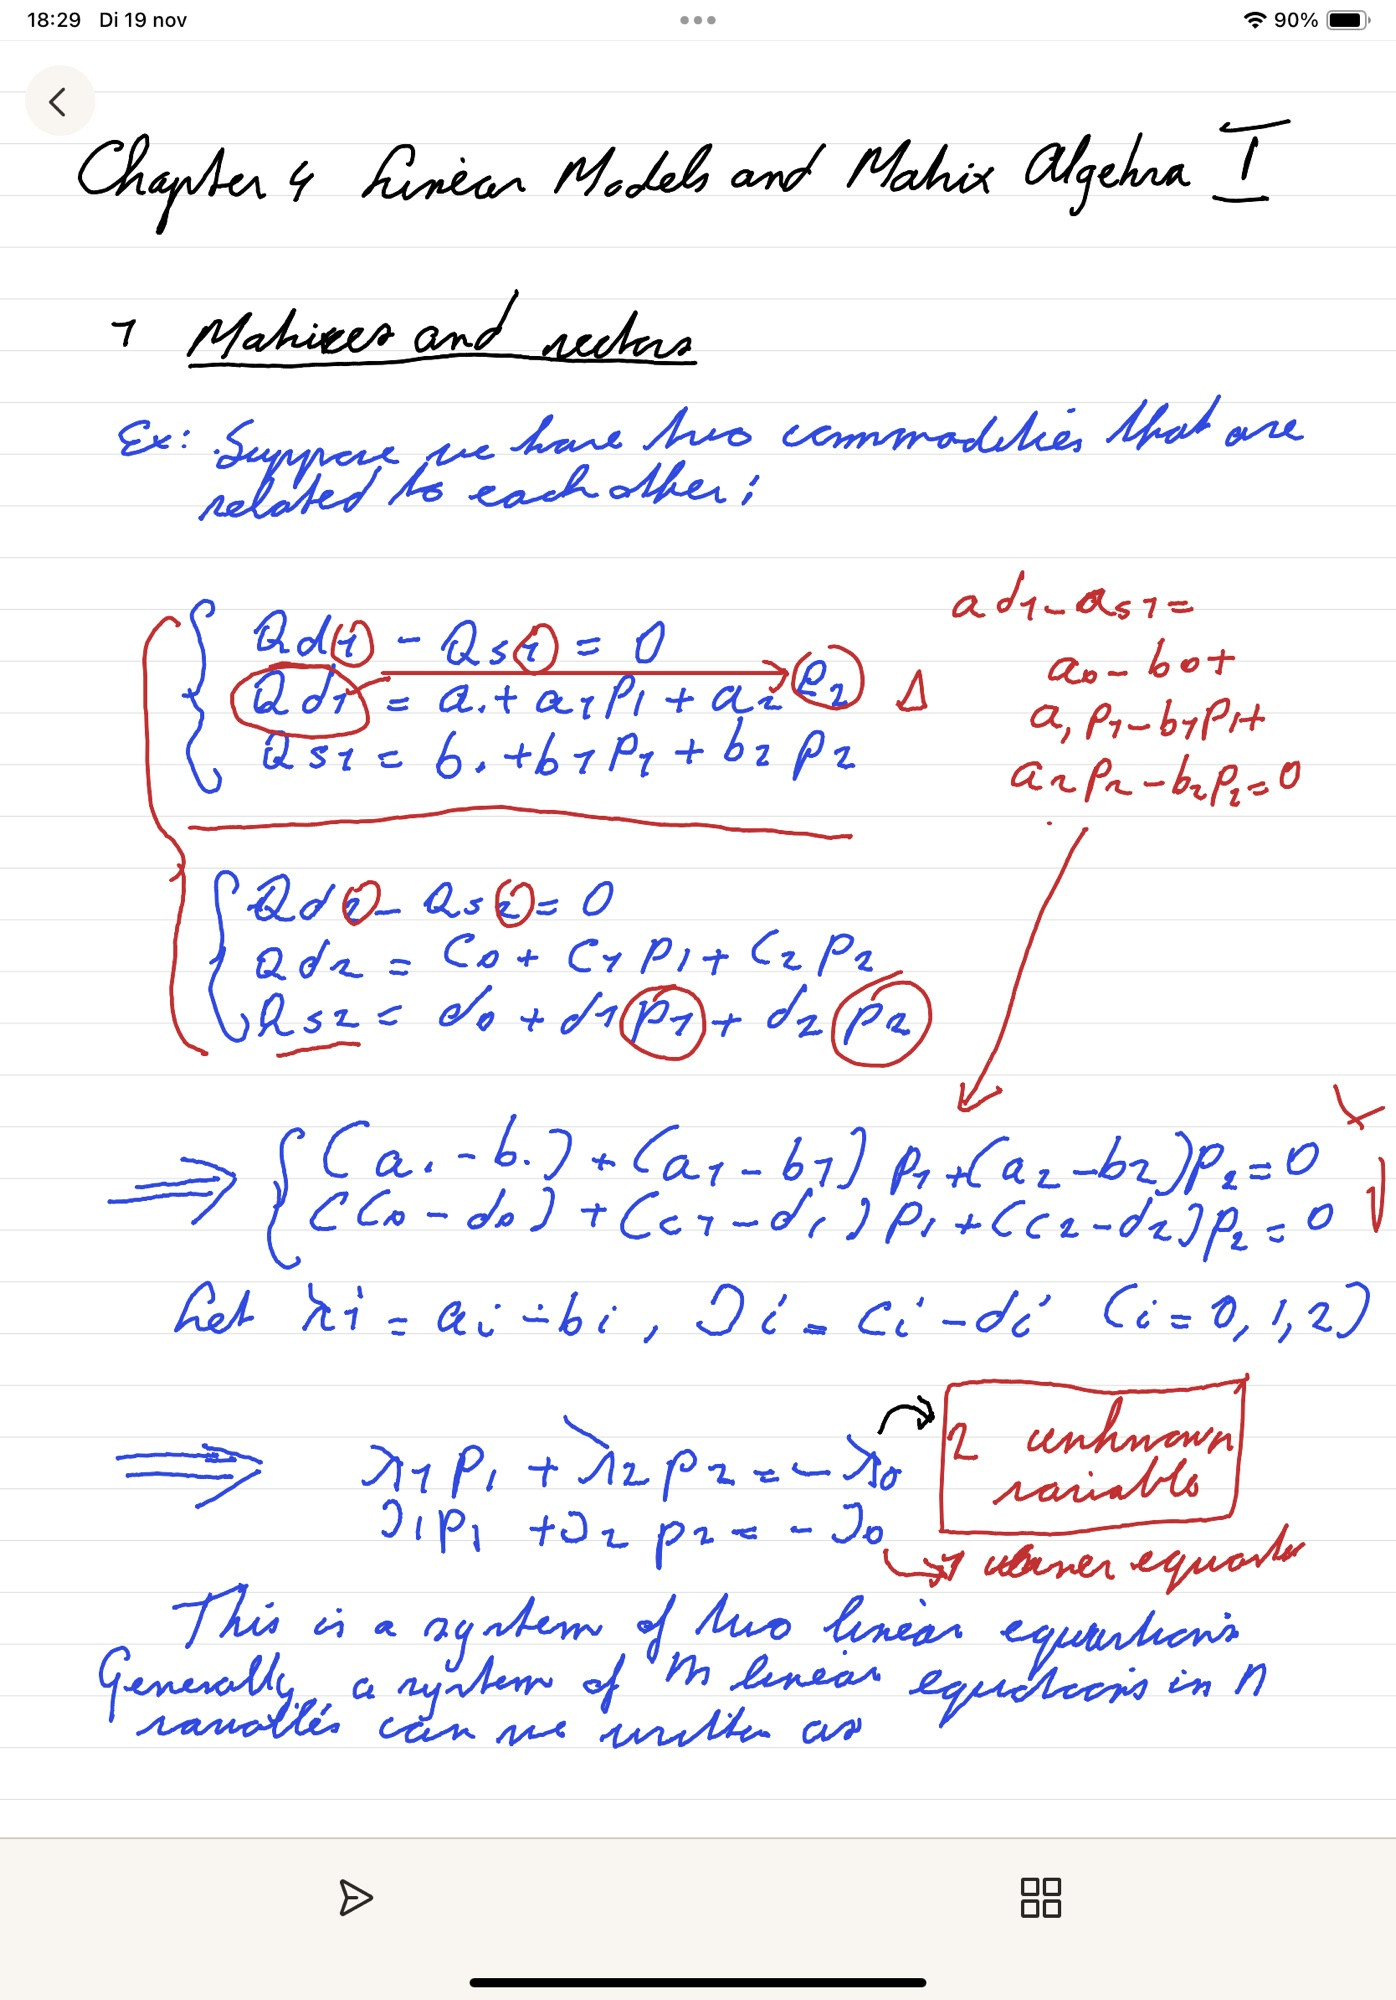 18:29 Di 19 nov
90%
Chapter 4 Linear Models and Matrix Algebra I
1 Matrices and vectors
Ex: Suppose we have two commodities that are
related to each other:
Qd1 - Qs1 = 0
Qd1 = a. + a1 P1 + a2 P2
Qs1 = b. + b1 P1 + b2 P2
ad1 - as1 =
a0 - b0 +
a1 P1 - b1 P1 +
a2 P2 - b2 P2 = 0
Qd2 - Qs2 = 0
Qd2 = C0 + C1 P1 + C2 P2
Qs2 = d0 + d1 P1 + d2 P2
⇒ { (a. - b.) + (a1 - b1) P1 + (a2 - b2) P2 = 0
(C0 - d0) + (c1 - d1) P1 + (c2 - d2) P2 = 0
Let λi = ai - bi, Ji = ci - di (i = 0, 1, 2)
⇒ λ1 P1 + λ2 P2 = - λ0
J1 P1 + J2 P2 = - J0
2 unknown
variables
This is a system of two linear equations
Generally a system of m linear equations in n
variables can we written as